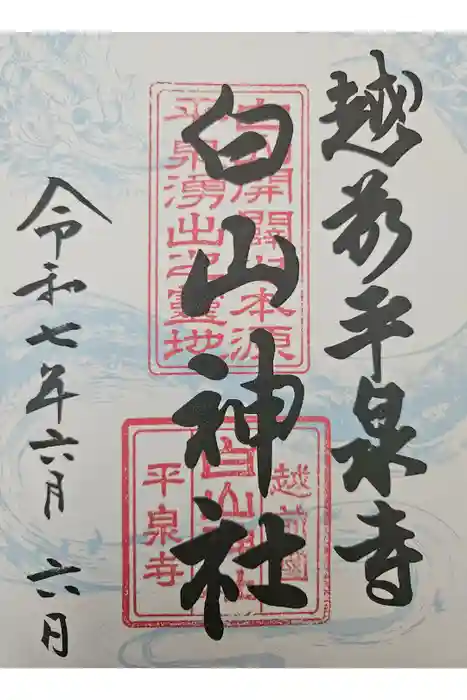 越前平泉寺
白山神社
令和七年六月六日
白山開闢之本源
平泉湧出之霊地
越前國
白山神社
平泉寺